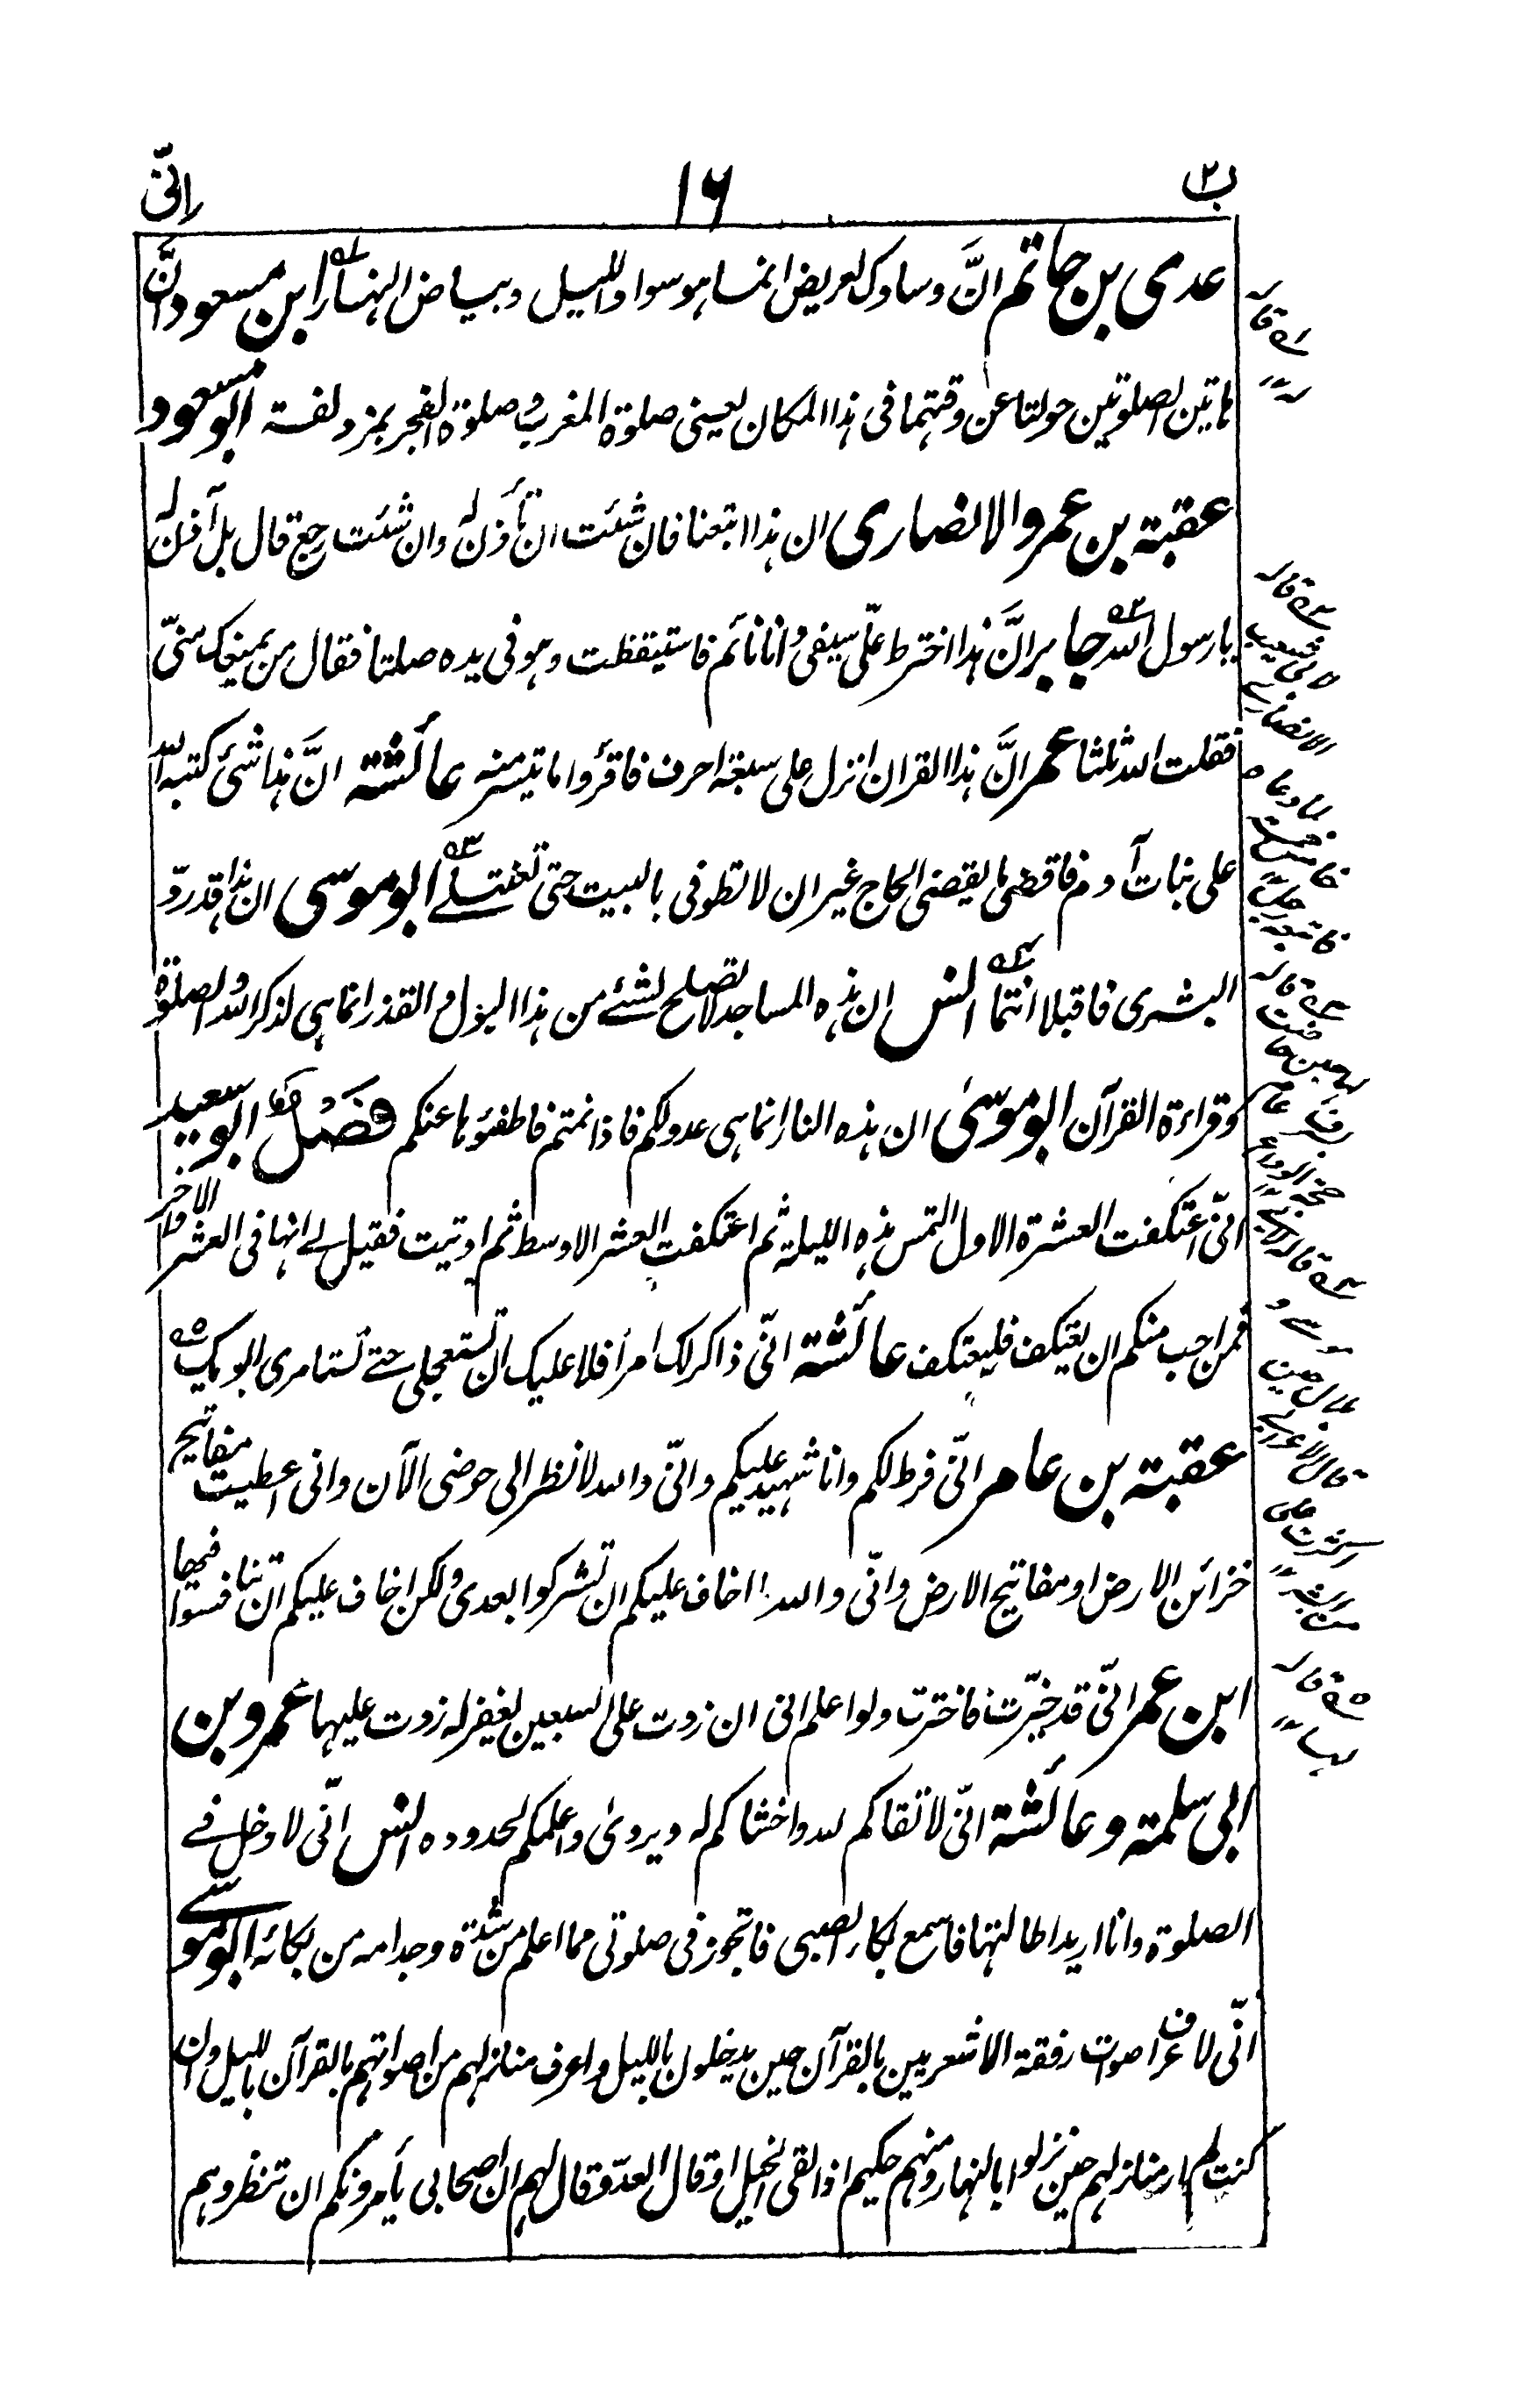 ب٢ ١٦ انّى
عدى بن حاتم انَّ وسادك لعريض انما هو سواد الليل وبياض النهار ابن مسعود انَّ
هاتين الصلوتين حولتا عن وقتهما فى هذا المكان يعنى صلوة المغرب وصلوة الفجر بمزدلفة ابو مسعود
عقبة بن عمرو الانصارى ان هذا اتبعنا فان شئت ان تأذن له وان شئت رجع قال بل آذن له
يا رسول الله جابر انَّ هذا اخترط علّى سيفى وانا نائم فاستيقظت وهو فى يده صلتا فقال من يمنعك منّى
فقلت الله ثلثا عمر انَّ هذا القران انزل على سبعة احرف فاقرؤا ما تيسر منه عائشة انَّ هذا شئ كتبه الله
على بنات آدم فاقضى ما يقضى الحاج غير ان لا تطوفى بالبيت حتى تغتسلى ابو موسى ان هذا قد ردّ
البشرى فاقبلا انتما انس ان هذه المساجد لا تصلح لشئ من هذا البول والقذر انما هى لذكر الله والصلوة
وقراءة القرآن ابو موسىٰ ان هذه النار انما هى عدو لكم فاذا نمتم فاطفئوها عنكم فصل ابو سعيد
انّى اعتكفت العشرة الاول التمس هذه الليلة ثم اعتكفت العشر الاوسط ثم اوتيت فقيل لى انها فى العشر الاواخر
فمن احب منكم ان يعتكف فليعتكف عائشة انّى ذاكر لك امرا فلا عليك ان تستعجلى حتى تستامرى ابويك
عقبة بن عامر انّى فرط لكم وانا شهيد عليكم وانّى والله لانظر الى حوضى الآن وانى اعطيت مفاتيح
خزائن الارض او مفاتيح الارض وانّى والله ما اخاف عليكم ان تشركوا بعدى ولكن اخاف عليكم ان تنافسوا فيها
ابن عمر انّى قد خيّرت فاخترت ولو اعلم انى ان زدت على السبعين يغفر له زدت عليها عمرو بن
ابى سلمة وعائشة انّى لاتقاكم لله واخشاكم له ويروىٰ واعلمكم بحدوده انس انّى لا دخل فى
الصلوة وانا اريد اطالتها فاسمع بكاء الصبى فاتجوز فى صلوتى مما اعلم من شدة وجد امه من بكائه ابو موسى
انّى لا عرف اصوات رفقة الاشعريين بالقرآن حين يدخلون بالليل واعرف منازلهم من اصواتهم بالقرآن بالليل وان
كنت لم ار منازلهم حين نزلوا بالنهار ومنهم حكيم اذا لقى الخيل او قال العدو قال لهم ان اصحابى يأمرونكم ان تنظروهم